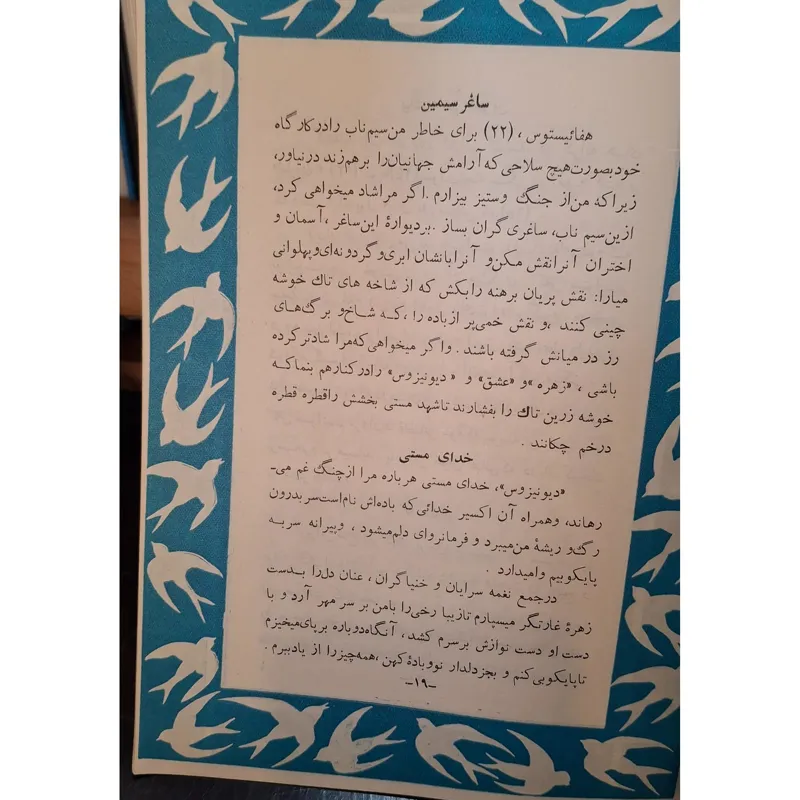 ساغر سیمین
هفائیستوس ، (۲۲) برای خاطر من سیم ناب را در کارگاه
خود بصورت هیچ سلاحی که آرامش جهانیان را برهم زند در نیاور،
زیرا که من از جنگ و ستیز بیزارم . اگر مرا شاد میخواهی کرد،
ازین سیم ناب، ساغری گران بساز . بر دیوارهٔ این ساغر ، آسمان و
اختران آنرا نقش مکن و آنرا بانشان ابری و گردونه‌ای و پهلوانی
میارا : نقش پریان برهنه را بکش که از شاخه های تاك خوشه
چینی کنند ، و نقش خمی پر از باده را ، که شاخ و برگ‌های
رز در میانش گرفته باشند . و اگر میخواهی که مرا شادتر کرده
باشی ، «زهره» و «عشق» و « دیونیزوس» را در کنار هم بنما که
خوشه زرین تاك را بفشارند تا شهد مستی بخشش را قطره قطره
در خم چکانند .
خدای مستی
«دیونیزوس»، خدای مستی هر باره مرا از چنگ غم می‌ـ
رهاند، و همراه آن اکسیر خدائی که باده‌اش نام است سر بدرون
رگ و ریشهٔ من میبرد و فرمانروای دلم میشود ، و پیرانه سر به
پایکوبیم وامیدارد .
در جمع نغمه سرایان و خنیاگران ، عنان دل را بدست
زهرهٔ غارتگر میسپارم تا زیبا رخی را با من بر سر مهر آرد و با
دست او دست نوازش بر سرم کشد، آنگاه دوباره بر پای میخیزم
تا پایکوبی کنم و بجز دلدار نو و بادهٔ کهن ، همه چیز را از یاد ببرم .
ـ۱۹ـ